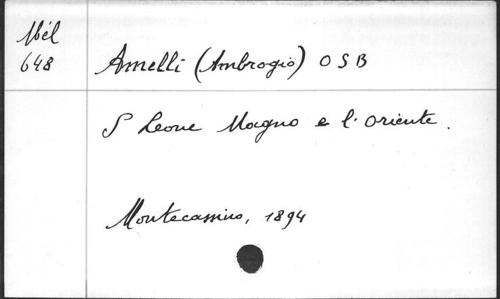 Mél
648
Amelli (Ambrogio) OSB
S Leone Magno e l'oriente.
Montecassino, 1894